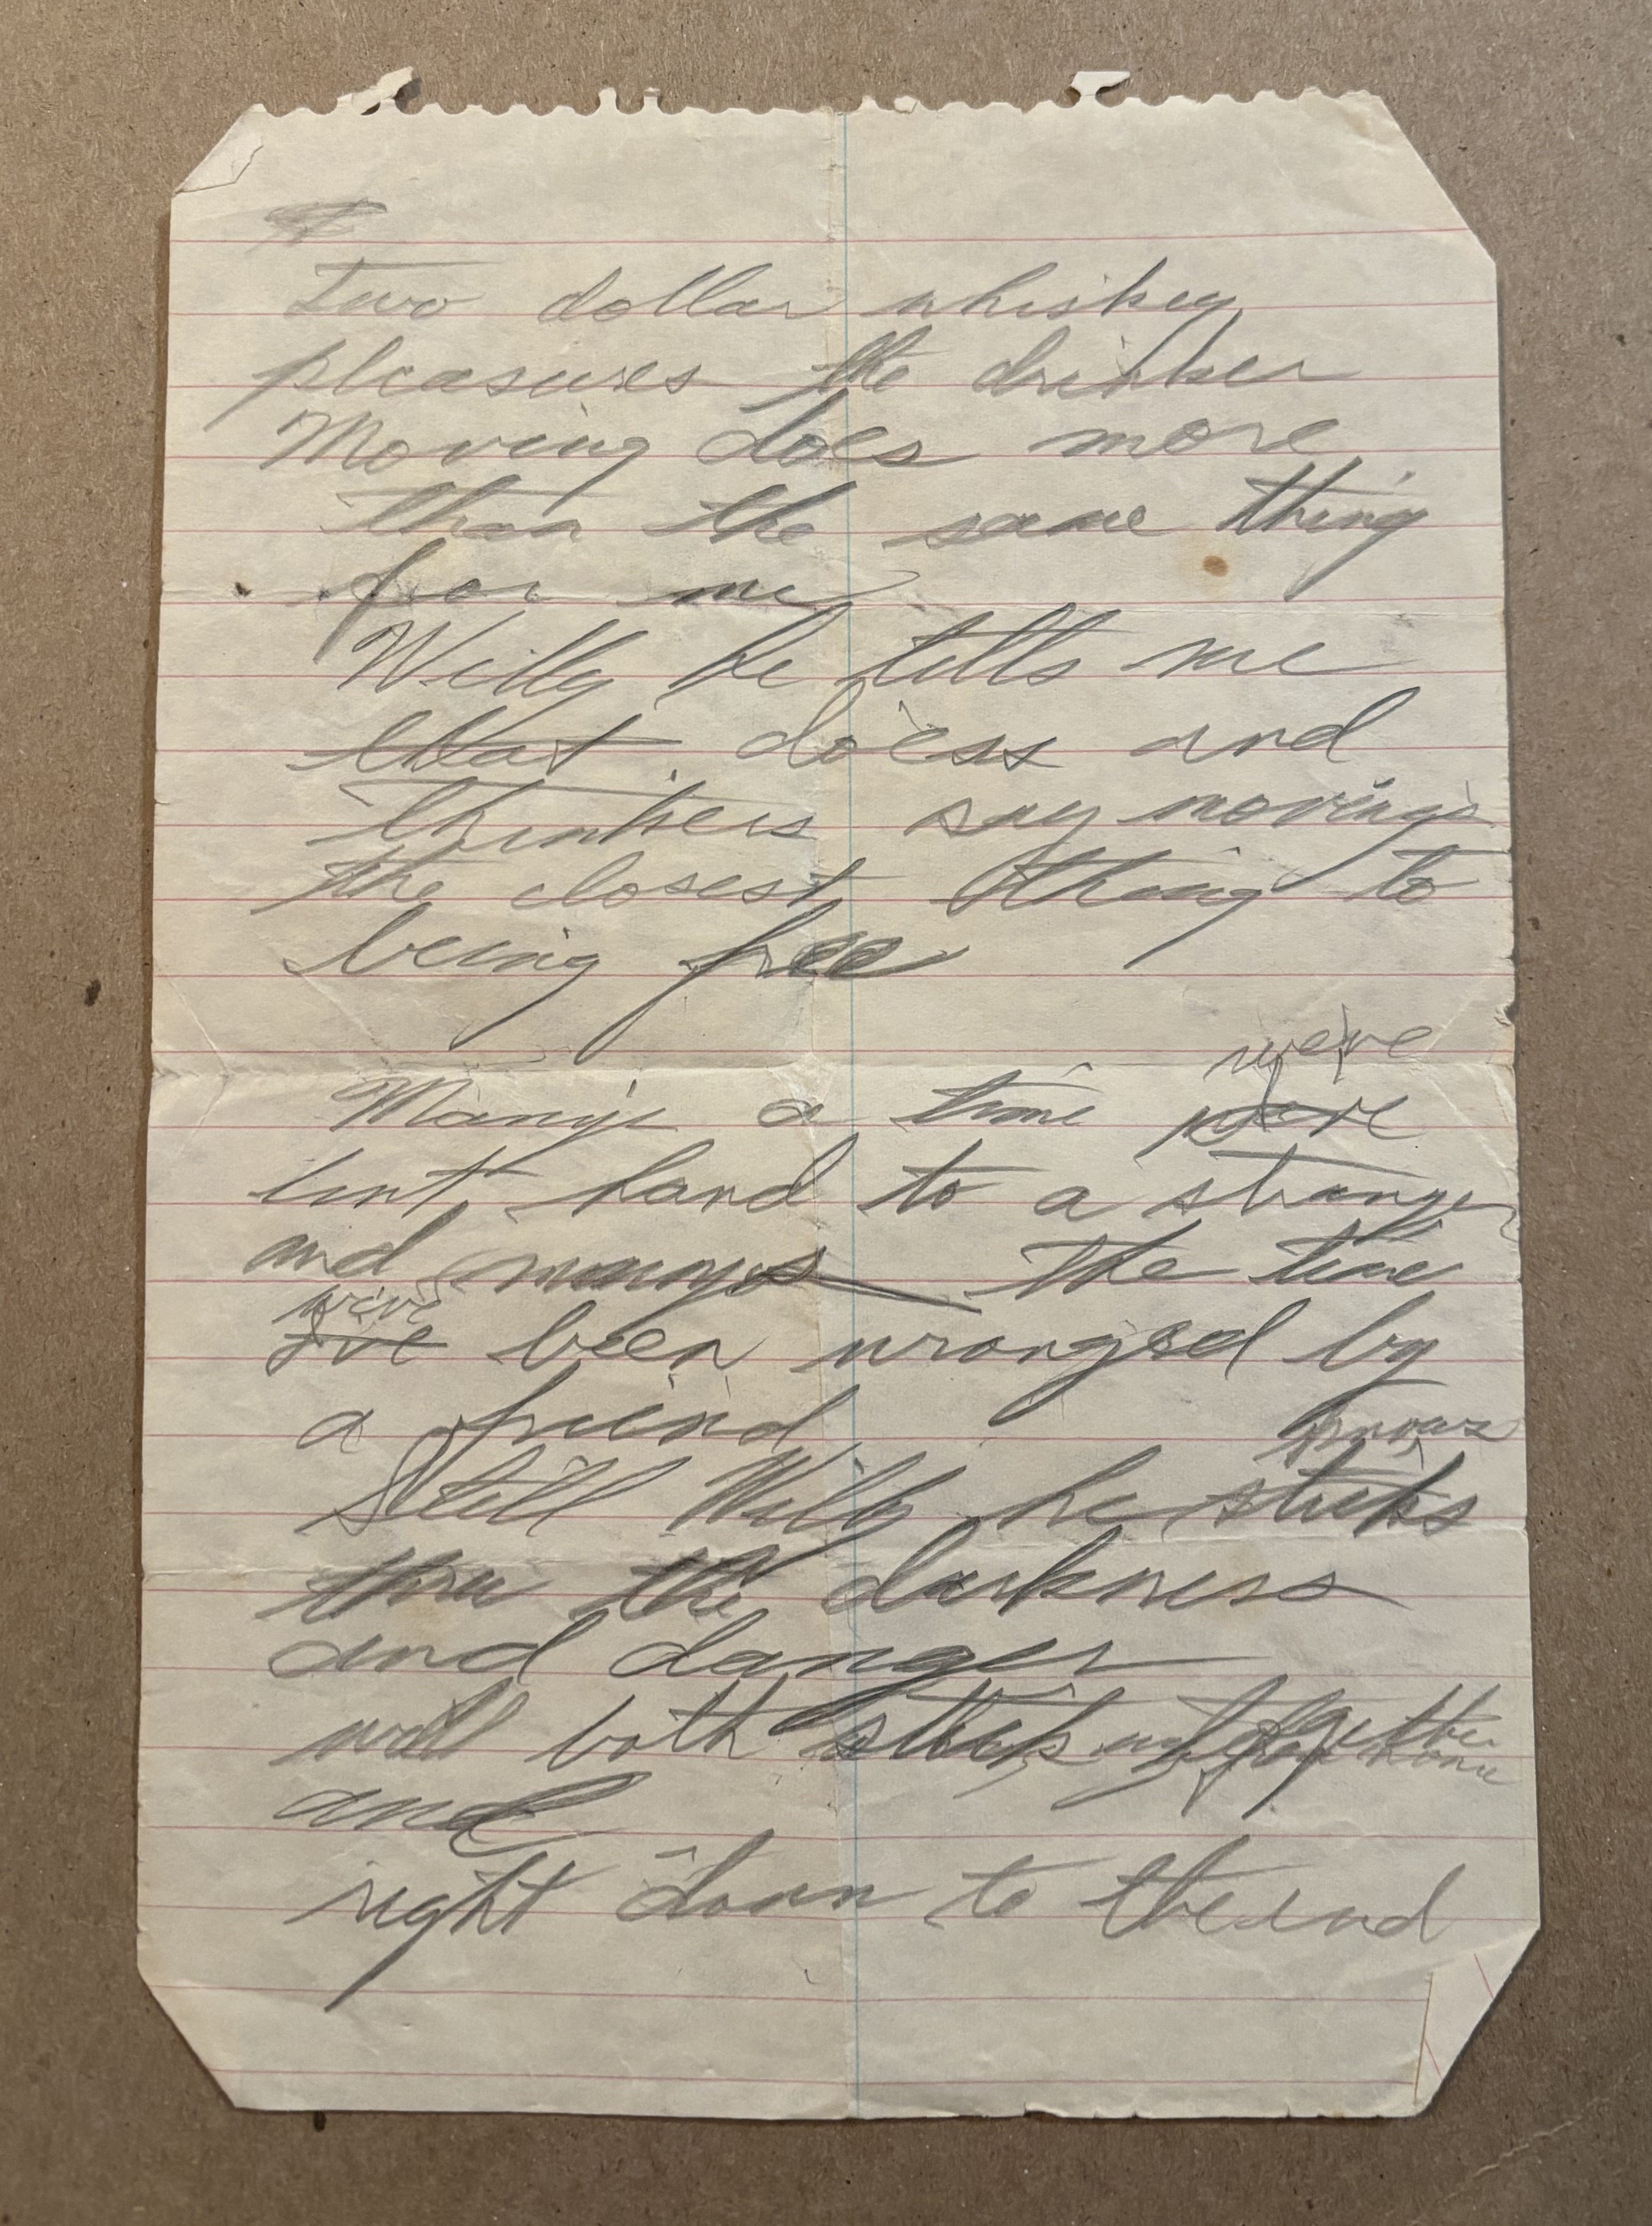 Two dollar whiskey
pleasures the drinker
Moving does more
than the same thing
for me
Willy he tells me
that doess and
thinkers say moving's
the closest thing to
being free
we've
Many's a time
lent hand to a stranger
and many's the time
we've
I've been wronged by
a friend
knows
Still Willy he sticks
thru the darkness
and danger
well both stick together
and
right down to the end